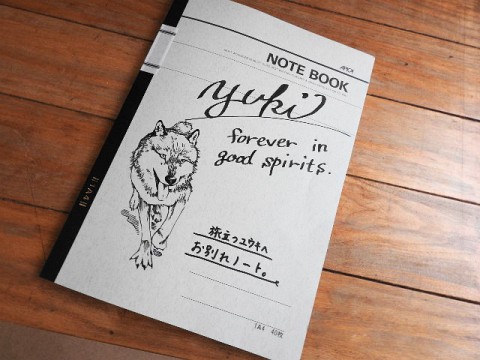 APICA
NOTE BOOK
yuki
forever in
good spirits.
旅立つユウキへ
お別れノート。